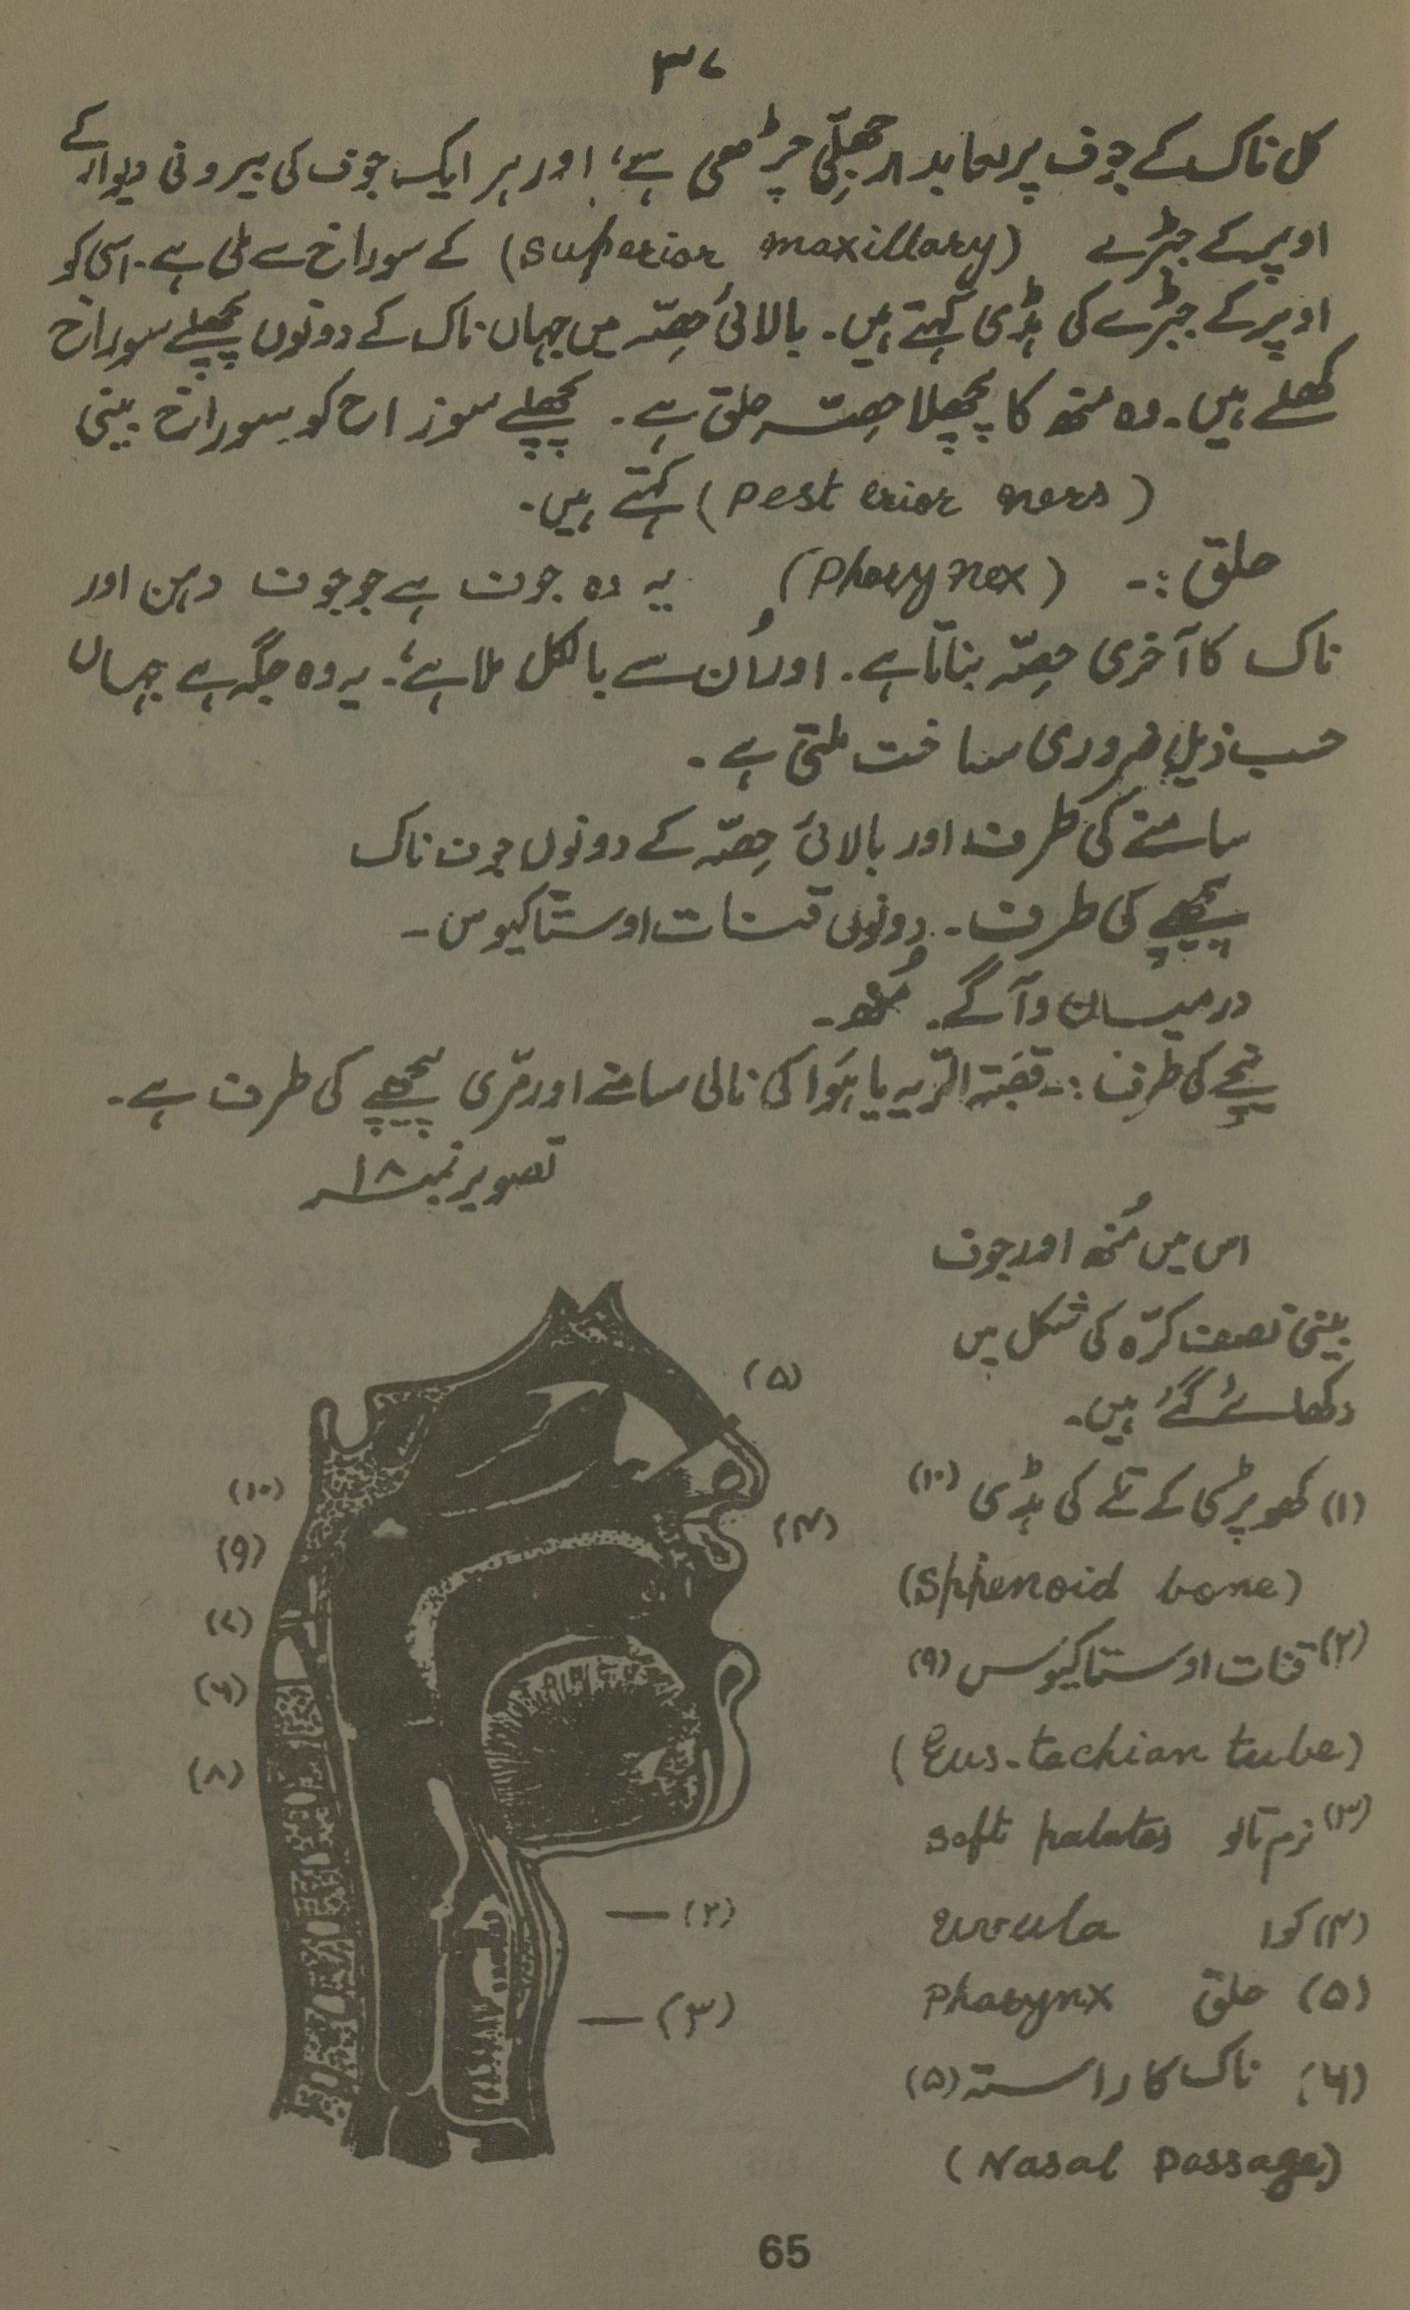 ۳۷
کل ناک کے جوف پر لعابدار جھلّی چڑھی ہے، اور ہر ایک جوف کی بیرونی دیوار کے
اوپر کے جبڑے (superior maxillary) کے سوراخ سے ملی ہے۔ اسی کو
اوپر کے جبڑے کی ہڈی کہتے ہیں۔ بالائی حصّہ میں جہاں ناک کے دونوں پچھلے سوراخ
کھلے ہیں۔ وہ منھ کا پچھلا حصّہ حلق ہے۔ پچھلے سوراخ کو سوراخ بینی
(pest erior ners) کہتے ہیں۔
حلق :- (Pharynex) یہ وہ جوف ہے جو جوف دہن اور
ناک کا آخری حصّہ بناتا ہے۔ اور اُن سے بالکل ملا ہے، یہ وہ جگہ ہے جہاں
حسب ذیل ضروری ساخت ملتی ہے۔
سامنے کی طرف اور بالائی حصّہ کے دونوں جوف ناک
پیچھے کی طرف۔ دونوں قنات اوستاکیوس۔
درمیان و آگے۔ مُنھ۔
نیچے کی طرف :- قصبۃ الرّیہ یا ہَوا کی نالی سامنے اور مرّی پیچھے کی طرف ہے۔
تصویر نمبر ۱۸
اس میں مُنھ اور جوف
بینی نصف کرّہ کی شکل میں
دکھائے گئے ہیں۔
(۱) کھوپڑی کے تلے کی ہڈی (۱۰)
(Sphenoid bone)
(۲) قنات اوستاکیوس (۹)
(Eus-tachian tube)
(۳) نرم تالو soft palates
(۴) کوا uvula
(۵) حلق Pharynx
(۶) ناک کا راستہ (۵)
(Nasal Passage)
(۵)
(۴)
(۱۰)
(۹)
(۷)
(۶)
(۸)
(۲)
(۳)
65